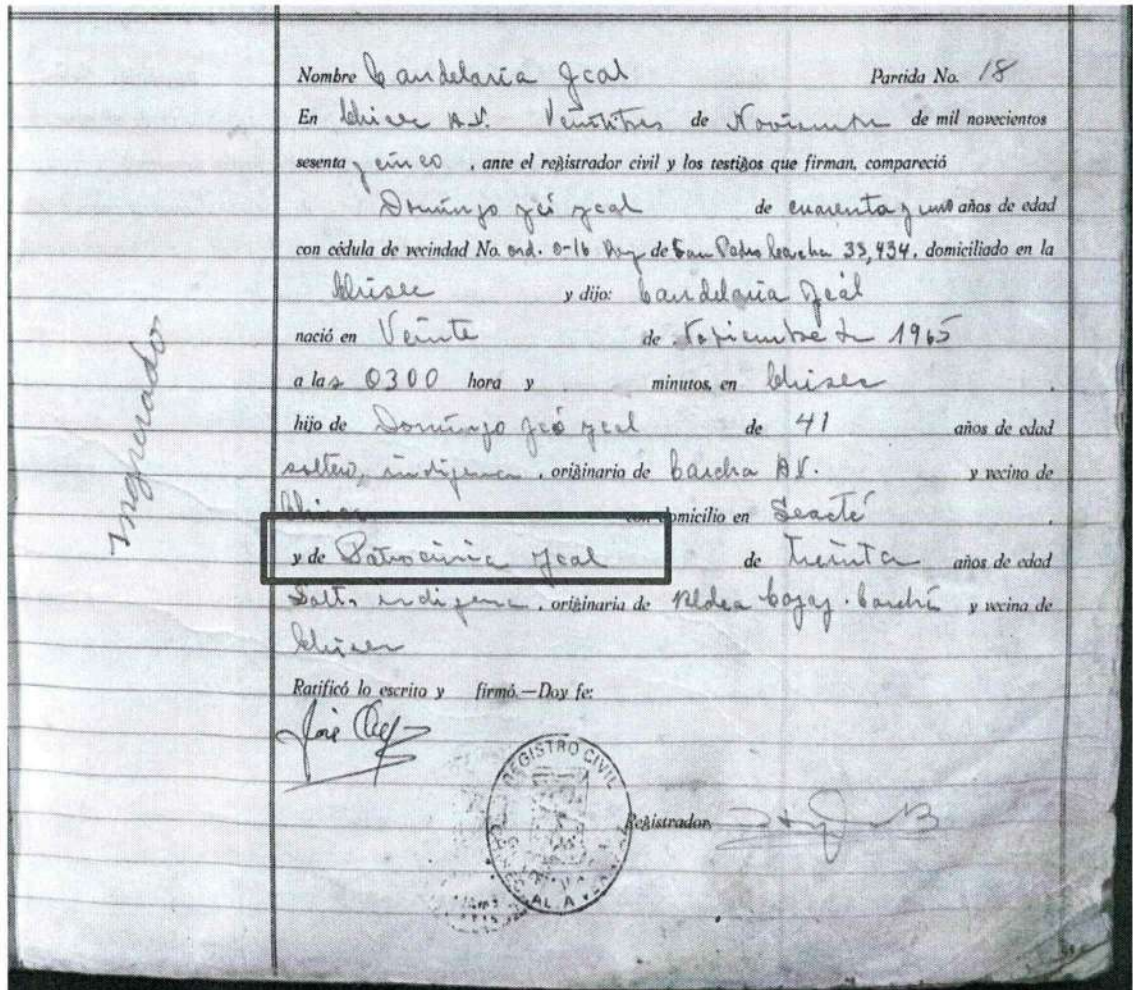 Nombre Candelaria Ical Partida No. 18
En Chisec A.V. Veintitres de Noviembre de mil novecientos
sesenta y cinco, ante el registrador civil y los testigos que firman, compareció
Domingo Icó Ical de cuarenta y uno años de edad
con cédula de vecindad No. ord. O-16 Reg. de San Pedro Carcha 33,434, domiciliado en la
Chisec y dijo: Candelaria Ical
nació en Veinte de Noviembre de 1965
a las 0300 hora y minutos, en Chisec.
hijo de Domingo Icó Ical de 41 años de edad
soltero, indigena, originario de Carcha A.V. y vecino de
Chisec con domicilio en Seacté.
y de Patrocinia Ical de treinta años de edad
Solt. indigena, originaria de Aldea Carchá y vecina de
Chisec
Ratificó lo escrito y firmó.—Doy fe:
José
REGISTRO CIVIL
Registrador
Ingresado